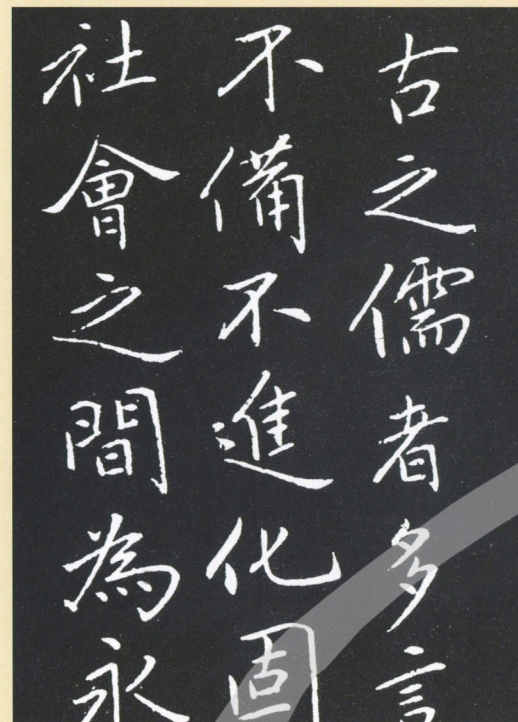 古之儒者多言
不備不進化固
社會之間為永